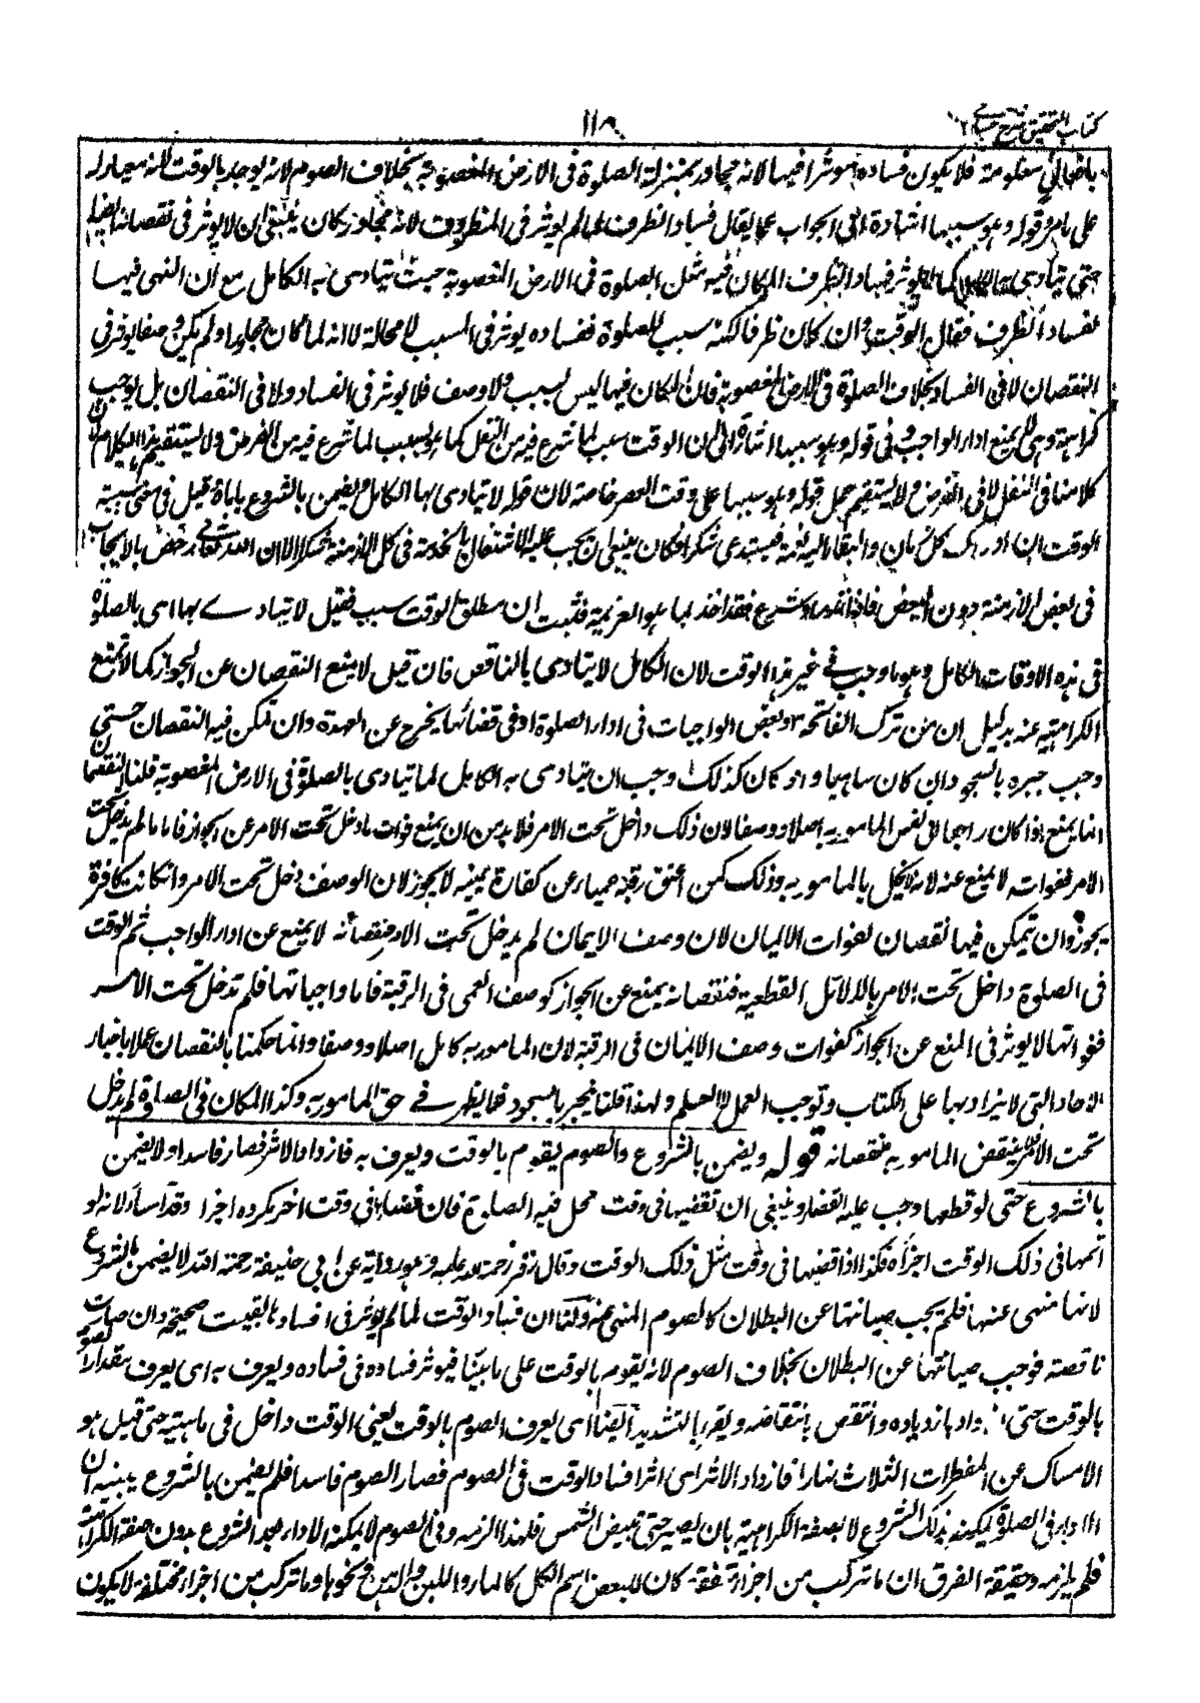 كتاب التحقيق شرح حسامي
۱۱۸
بافعال معلومة فلا يكون فساده موثرا فيها لانه مجاور بمنزلة الصلوة فى الارض المغصوبة بخلاف الصوم لانه يوجد بالوقت لانه معيار له
على ما مر قوله وهو سببها اشارة الى الجواب عما يقال فساد الظرف لما لم يوثر فى المظروف لانه مجاور كان ينبغى ان لا يوثر فى نقصانه ايضا
حتى يتادى به الكامل كما لم يوثر فساد الظرف المكان فيه مثل الصلوة فى الارض المغصوبة حيث يتادى به الكامل مع ان النهى فيها
لفساد الظرف فقال الوقت وان كان ظرفا لكنه سبب للصلوة ففساده يوثر فى المسبب لا محالة لا انه لما كان مجاورا ولم يكن وصفا يوثر فى
النقصان لا فى الفساد بخلاف الصلوة فى الارض المغصوبة فان المكان فيها ليس بسبب ولا وصف فلا يوثر فى الفساد ولا فى النقصان بل يوجب
كراهة وهى لا يمنع اداء الواجب وفى قوله وهو سببها اشارة الى ان الوقت سبب لما شرع فيه من النفل كما هو سبب لما شرع فيه من الفرض ولا يستقيم هذا الكلام لان
كلامنا فى النفل لا فى الفرض ولا يستقيم حمل قوله وهو سببها على وقت العصر خاصة لان قوله لا يتادى بها الكامل ويضمن بالشروع ياباه قيل فى معنى سببية
الوقت ان ادراك كل زمان والبقاء اليه نعمة فيستدعى شكرا فكان ينبغى ان يجب عليه الاشتغال بالخدمة فى كل الازمنة شكرا الا ان الله تعالى رخص بالايجاب
فى بعض الازمنة دون البعض فاذا شرع فقد اخذ بما هو العزيمة فثبت ان مطلق الوقت سبب فقيل لا يتادى بها اى بالصلوة
فى هذه الاوقات الكامل وهو ما وجب فى غير هذا الوقت لان الكامل لا يتادى بالناقص فان قيل لا يمنع النقصان عن الجواز كما لا تمنع
الكراهية عنه بدليل ان من ترك الفاتحة وبعض الواجبات فى اداء الصلوة او فى قضائها يخرج عن العهدة وان تمكن فيه النقصان حتى
وجب جبره بالسجود ان كان ساهيا ولو كان كذلك وجب ان يتادى به الكامل كما يتادى بالصلوة فى الارض المغصوبة قلنا النقصان
انما يمنع اذا كان راجعا الى نفس المامور به اصلا او وصفا لان ذلك داخل تحت الامر فلا بد من ان يمنع فوات ما دخل تحت الامر عن الجواز فاما ما لم يدخل تحت
الامر ففواته لا يمنع عنه لانه لا يخل بالمامور به وذلك كمن اعتق رقبة عمياء عن كفارة يمينه لا يجوز لان الوصف دخل تحت الامر وان كانت كافرة
يجوز وان تمكن فيها نقصان لفوات الايمان لان وصف الايمان لم يدخل تحت الامر فنقصانه لا يمنع عن اداء الواجب ثم الوقت
فى الصلوة داخل تحت الامر بالدلائل القطعية فنقصانه يمنع عن الجواز كوصف العمى فى الرقبة فاما واجباتها فلم تدخل تحت الامر
ففواتها لا يوثر فى المنع عن الجواز كفوات وصف الايمان فى الرقبة لان المامور به كامل اصلا ووصفا وانما حكمنا بالنقصان عملا باخبار
الاحاد التى لا يزاد بها على الكتاب وتوجب العمل لا العلم ولهذا قلنا ينجبر بالسجود فيما يظهر فى حق المامور به وكذا المكان فى الصلوة لم يدخل
تحت الامر فينقص المامور به بنقصانه قوله ويضمن بالشروع والصوم يقوم بالوقت ويعرف به فازداد الاثر فصار فاسدا ولا يضمن
بالشروع حتى لو قطعها وجب عليه القضاء وينبغى ان تقضيها فى وقت تحل فيه الصلوة فان قضاها فى وقت اخر مكروه اجزا وقد اساء لانه لو
اتمها فى ذلك الوقت اجزاه فكذا اذا قضيها فى وقت مثل ذلك الوقت وقال زفر رحمة الله عليه وهو رواية عن ابى حنيفة رحمة الله لا يضمن بالشروع
لانها منهى عنها فلم يجب صيانتها عن البطلان كالصوم المنهى عنه ولنا ان فساد الوقت لما لم يوثر فى افساد ما بقيت صحيحة وان صارت
ناقصة فوجب صيانتها عن البطلان بخلاف الصوم لانه يقوم بالوقت على ما بينا فيوثر فساده فى فساده ويعرف به اى يعرف مقدار الصوم
بالوقت حتى ازداد بازدياده وانتقص بانتقاصه ويقرء بالتشديد ايضا اى يعرف الصوم بالوقت يعنى الوقت داخل فى ماهيته حتى قيل هو
الامساك عن المفطرات الثلاث نهارا فازداد الاثر اى اثر فساد الوقت فى الصوم فصار الصوم فاسدا فلم يضمن بالشروع يبينه ان
الاداء فى الصلوة يمكنه بذلك الشروع لا بصفة الكراهية بان يصبر حتى تبيض الشمس فلهذا الزمه وفى الصوم لا يمكنه الاداء بهذا الشروع بدون صفة الكراهية
فلم يلزمه وحقيقة الفرق ان ما تركب من اجزاء متفقة كان للبعض اسم الكل كالماء واللبن والدهن ونحوها وما تركب من اجزاء مختلفة لا يكون